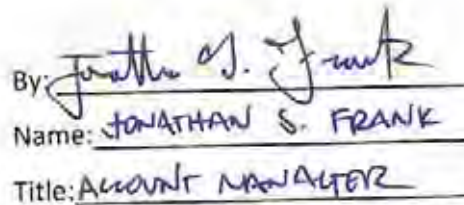 By: Jonathan S. Frank
Name: JONATHAN S. FRANK
Title: ACCOUNT MANAGER